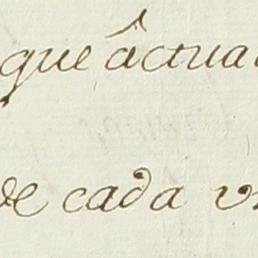 que âctua
de cada v